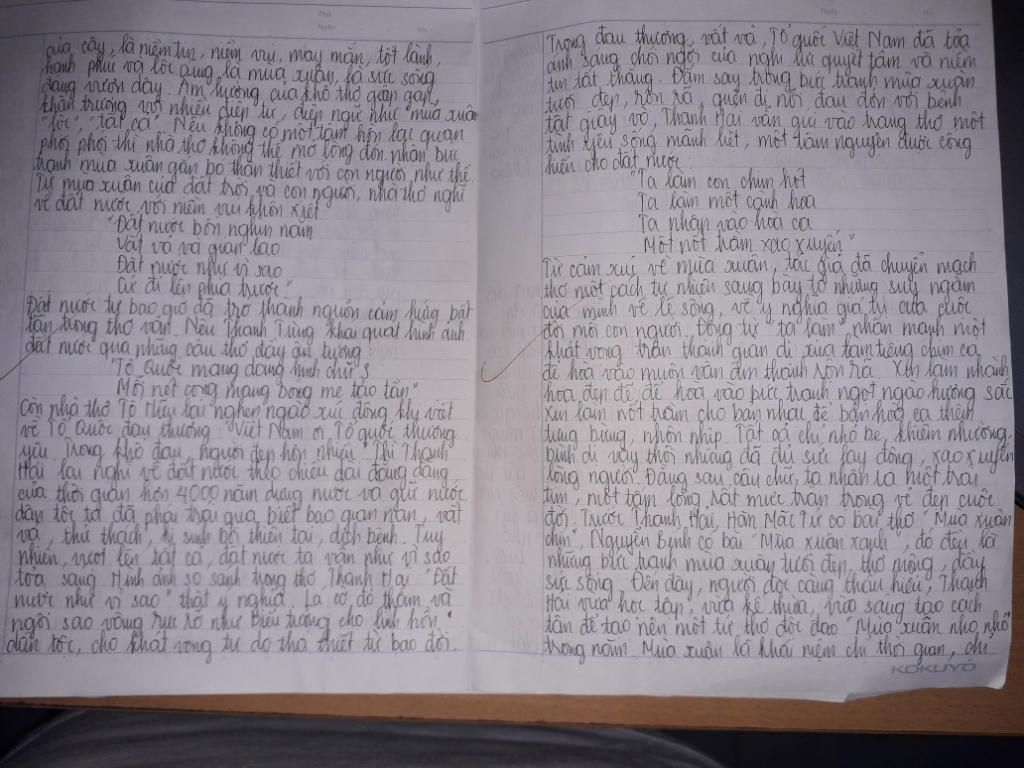 của cây, là niềm tin, niềm vui, may mắn, tốt lành,
hạnh phúc và lộc cũng là mùa xuân, là sức sống
đang vươn dậy. Âm hưởng của khổ thơ gấp gáp,
khẩn trương với nhiều điệp từ, điệp ngữ như "mùa xuân"
"lộc", "tất cả". Nếu không có một tâm hồn lạc quan
phơi phới thì nhà thơ không thể mở lòng đón nhận bức
tranh mùa xuân gắn bó thân thiết với con người như thế.
Từ mùa xuân của đất trời và con người, nhà thơ nghĩ
về đất nước với niềm vui khôn xiết.
"Đất nước bốn nghìn năm
Vất vả và gian lao
Đất nước như vì sao
Cứ đi lên phía trước."
Đất nước tự bao giờ đã trở thành nguồn cảm hứng bất
tận trong thơ văn. Nếu Thanh Tùng khái quát hình ảnh
đất nước qua những câu thơ đầy ấn tượng
"Tổ Quốc mang dáng hình chữ S
Mỗi nét cong mang bóng mẹ tảo tần"
Còn nhà thơ Tố Hữu lại nghẹn ngào xúc động khi viết
về Tổ Quốc đau thương: Việt Nam ơi Tổ quốc thương
yêu. Trong khổ đau, người đẹp hơn nhiều. Thì Thanh
Hải lại nghĩ về đất nước theo chiều dài đằng đẵng
của thời gian hơn 4000 năm dựng nước và giữ nước
dân tộc ta đã phải trải qua biết bao gian nan, vất
vả, thử thách, hi sinh bởi thiên tai, dịch bệnh. Tuy
nhiên, vượt lên tất cả, đất nước ta vẫn như vì sao
tỏa sáng. Hình ảnh so sánh trong thơ Thanh Hải "Đất
nước như vì sao" thật ý nghĩa. Lá cờ đỏ thắm và
ngôi sao vàng rực rỡ như biểu tượng cho linh hồn
dân tộc, cho khát vọng tự do tha thiết từ bao đời.
Trong đau thương, vất vả, Tổ quốc Việt Nam đã tỏa
ánh sáng chói ngời của nghị lực quyết tâm và niềm
tin tất thắng. Đắm say trong bức tranh mùa xuân
tươi đẹp, rộn rã, quên đi nỗi đau đớn với bệnh
tật giày vò, Thanh Hải vẫn gửi vào trang thơ một
tình yêu sống mãnh liệt, một tâm nguyện được cống
hiến cho đất nước:
"Ta làm con chim hót
Ta làm một cành hoa
Ta nhập vào hòa ca
Một nốt trầm xao xuyến"
Từ cảm xúc về mùa xuân, tác giả đã chuyển mạch
thơ một cách tự nhiên sang bày tỏ những suy ngẫm
của mình về lẽ sống, về ý nghĩa giá trị của cuộc
đời mỗi con người. Động từ "ta làm" nhấn mạnh một
khát vọng trân thành giản dị xin làm tiếng chim ca
để hòa vào muôn vàn âm thanh rộn rã. Xin làm nhành
hoa đẹp đẽ để hòa vào bức tranh ngọt ngào hương sắc
xin làm nốt trầm cho bản nhạc để bản hòa ca thêm
tưng bừng, nhộn nhịp. Tất cả chỉ nhỏ bé, khiêm nhường,
bình dị vậy thôi nhưng đã đủ sức lay động, xao xuyến
lòng người. Đằng sau câu chữ, ta nhận ra một trái
tim, một tấm lòng rất mực trân trọng vẻ đẹp cuộc
đời. Trước Thanh Hải, Hàn Mặc Tử có bài thơ "Mùa xuân
chín", Nguyễn Bính có bài "Mùa xuân xanh", đó đều là
những bức tranh mùa xuân tươi đẹp, thơ mộng, đầy
sức sống. Đến đây, người đọc càng thấu hiểu, Thanh
Hải vừa học tập, vừa kế thừa, vừa sáng tạo cách
tân để tạo nên một tứ thơ độc đáo "Mùa xuân nho nhỏ"
trong năm. Mùa xuân là khái niệm chỉ thời gian, chỉ
KOKUYO